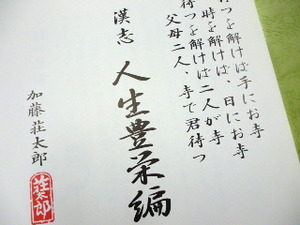 待つを解けば手にお寺
時を解けば、日にお寺
待つを解けば二人が寺
父母二人、寺で君待つ
漢志
人生豊栄編
加藤荘太郎
荘太郎